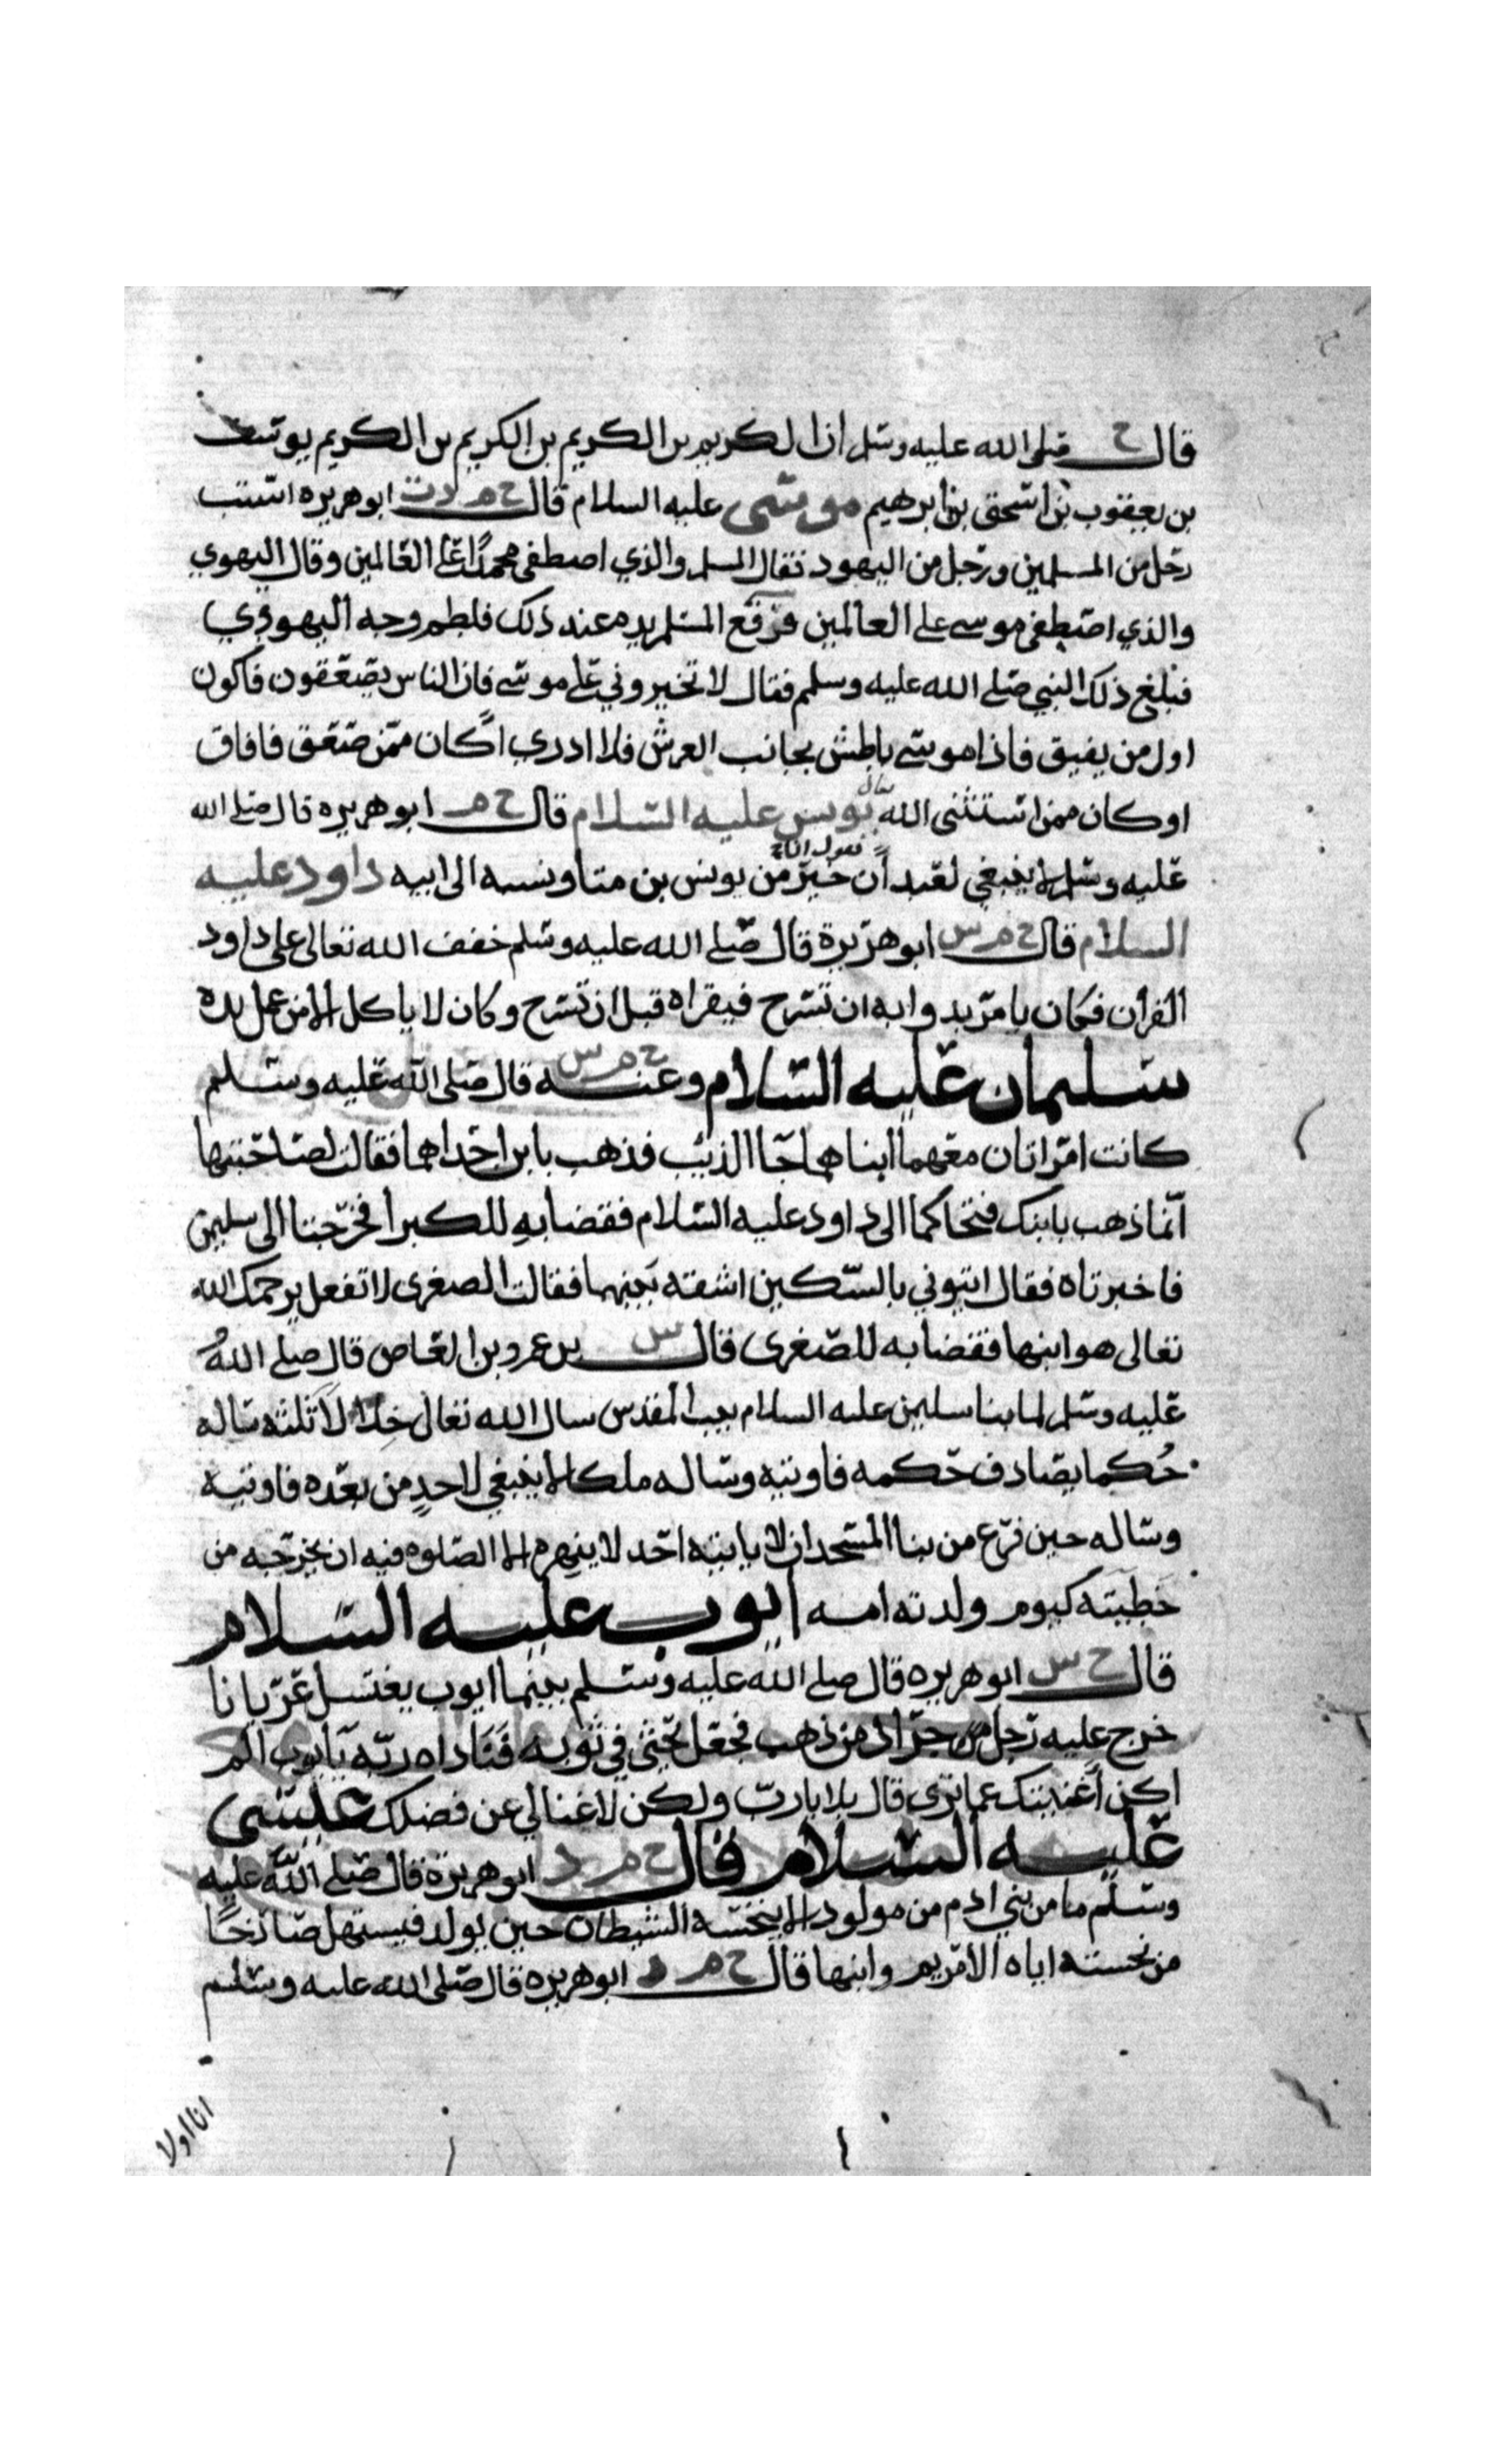 قال ح صلى الله عليه وسلم ان الكريم بن الكريم بن الكريم بن الكريم يوسف
بن يعقوب بن اسحق بن ابرهيم موسى عليه السلام قال ح م د ت ابو هريره استب
رجل من المسلمين ورجل من اليهود فقال المسلم والذي اصطفى محمدًا على العالمين وقال اليهوي
والذي اصطفى موسى على العالمين فرفع المسلم يده عند ذلك فلطم وجه اليهودي
فبلغ ذلك النبي صلى الله عليه وسلم فقال لا تخيروني على موسى فان الناس يصعقون فاكون
اول من يفيق فاذا موسى باطش بجانب العرش فلا ادري اكان ممن صعق فافاق
او كان ممن استثنى الله يونس عليه السلام قال ح م ابو هريره قال صلى الله
عليه وسلم لا ينبغي لعبد ان يقول انا خير من يونس بن متا ونسبه الى ابيه داود عليه
السلام قال ح م س ابو هريرة قال صلى الله عليه وسلم خفف الله تعالى على داود
القران فكان يامر بدوابه ان تسرح فيقراه قبل ان تسرح وكان لا ياكل الا من عمل يده
سليمان عليه السلام وعنه ح م س قال صلى الله عليه وسلم
كانت امراتان معهما ابناهما جا الذيب فذهب بابن احداهما فقالت لصاحبتها
انما ذهب بابنك فتحاكما الى داود عليه السلام فقضا به للكبرا فخرجتا الى سليمن
فاخبرتاه فقال ايتوني بالسكين اشقه بينهما فقالت الصغرى لا تفعل يرحمك الله
تعالى هو ابنها فقضا به للصغرى قال س بن عمرو بن العاص قال صلى الله
عليه وسلم لما بنا سليمن عليه السلام بيت المقدس سال الله تعالى خلالا ثلثه ساله
حُكما يصادف حكمه فاوتيه وساله ملكا لا ينبغي لاحدٍ من بعده فاوتيه
وساله حين فرع من بنا المسجد ان لا ياتيه احد لا ينهزه الا الصلوه فيه ان يخرجه من
خطيته كيوم ولدته امه ايوب عليه السلام
قال ح س ابو هريره قال صلى الله عليه وسلم بينما ايوب يغتسل عريانا
خرج عليه رجل من جراد من ذهب فجعل يحثي في ثوبه فناداه ربه يا ايوب الم
اكن اغنيتك عما ترى قال بلا يا رب ولكن لا غنا لي عن فضلك عيسى
عليه السلام قال ح م د ابو هريرة قال صلى الله عليه
وسلم ما من بني ادم من مولود الا ينخسه الشيطان حين يولد فيستهل صارخًا
من نخسته اياه الا مريم وابنها قال ح م د ابو هريره قال صلى الله عليه وسلم
انا اولا